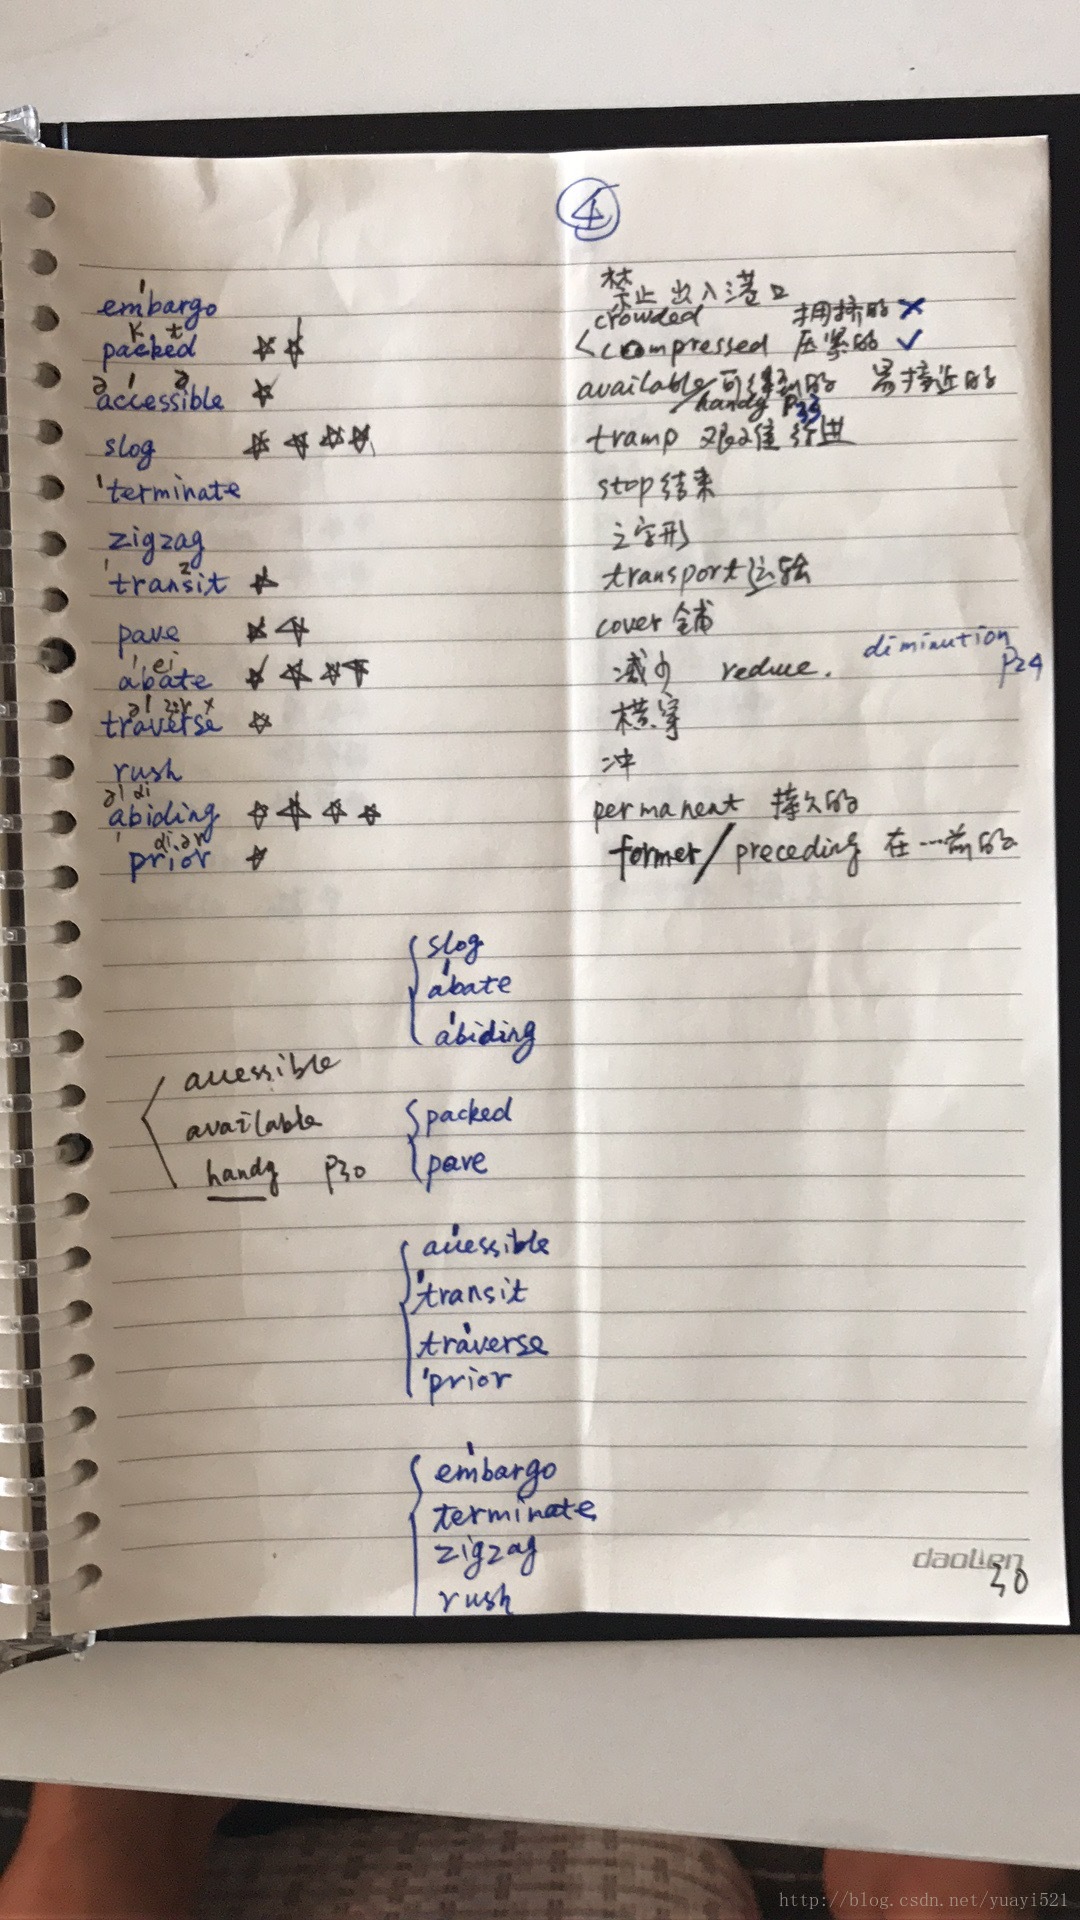 4
embargo 禁止出入港口
packed ☆☆ crowded 拥挤的 ×
compressed 压紧的 ✓
accessible ☆ available/可得到的 易接近的
handy P33
slog ☆☆☆☆ tramp 艰难行进
'terminate stop 结束
zigzag 之字形
'transit ☆ transport 运输
pave ☆☆ cover 铺
abate ☆☆☆☆ 减少 reduce. diminution P24
traverse ☆ 横穿
rush 冲
abiding ☆☆☆☆ permanent 持久的
prior ☆ former/preceding 在…前的
slog
abate
abiding
accessible
available
handy P30
packed
pave
accessible
'transit
traverse
'prior
embargo
terminate
zigzag
rush
daolien
30
http://blog.csdn.net/yuayi521